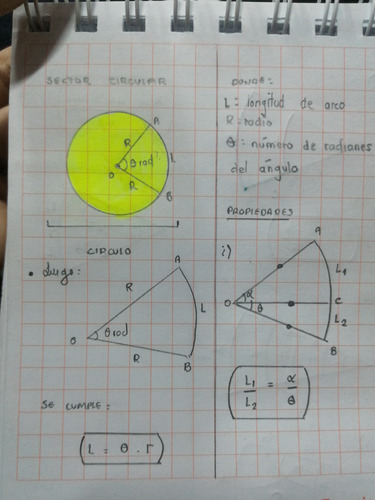 SECTOR CIRCULAR
A
R
O θ rad L
R
B
CIRCULO
• Luego:
A
R
L
O θ rad
R
B
SE CUMPLE:
L = θ . r
DONDE:
L = longitud de arco
R = radio
θ = número de radianes
del ángulo
PROPIEDADES
i)
A
L₁
α
O C
θ
L₂
B
L₁ = α
L₂ θ